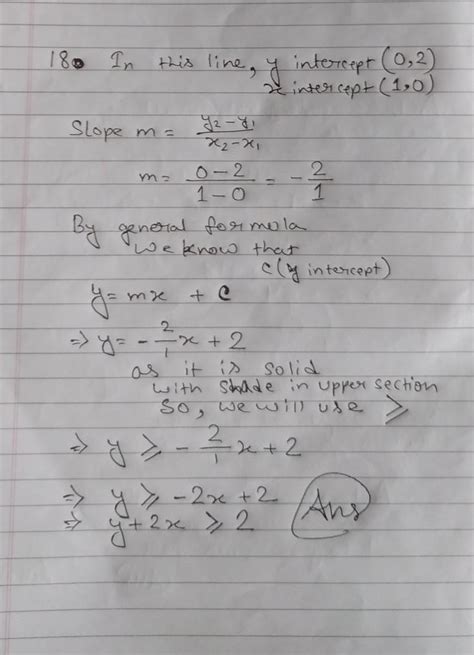 18. In this line, y intercept (0,2)
x intercept (1,0)
Slope m = y₂-y₁ / x₂-x₁
m = 0-2 / 1-0 = - 2/1
By general formula
we know that
c (y intercept)
y = mx + c
⇒ y = - 2/1 x + 2
as it is solid
with shade in upper section
So, we will use ≥
⇒ y ≥ - 2/1 x + 2
⇒ y ≥ -2x + 2
⇒ y + 2x ≥ 2
Ans